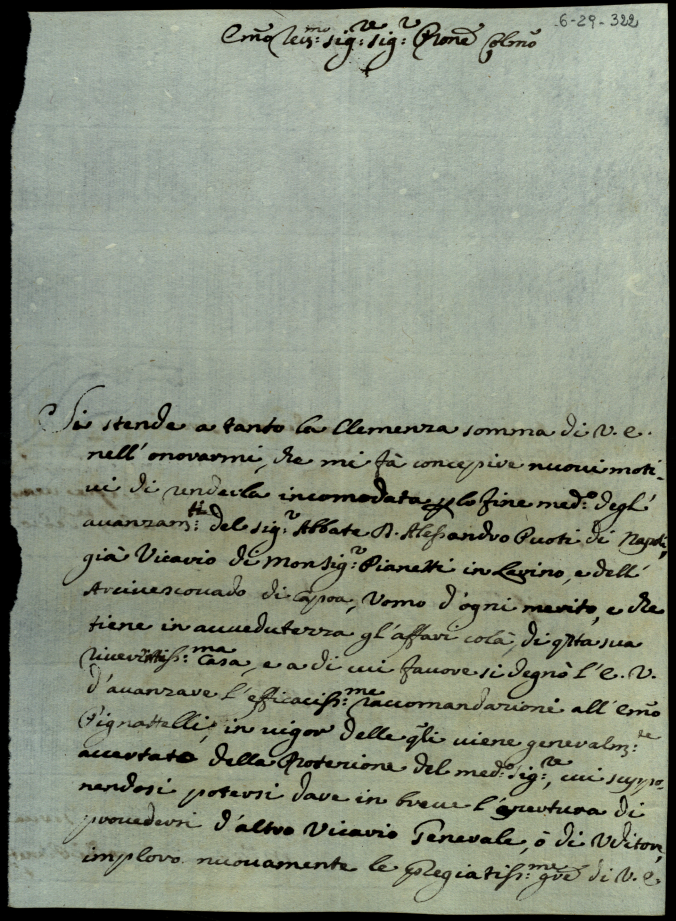 6-29-322
Emo Rev:mo Sig:re Sig:r Prone Colmo
Si stende a tanto la Clemenza somma di V. E.
nell'onorarmi, che mi fà concepire nuovi moti-
vi di renderla incomodata p lo fine med:o degl'
avanzam:ti del Sig:r Abbate D. Alessandro Puoti di Napoli,
già Vicario di Monsig:r Pianetti in Larino, e dell'
Arcivescovado di Capoa, Uomo d'ogni merito, e che
tiene in avvedutezza gl'affari colà, di qsta sua
riveritiss:ma Casa, e a di cui favore si degnò l'E. V.
d'avanzare l'efficaciss:me raccomandazioni all'Emo
Pignattelli, in vigor delle qli viene generalm:te
accertato della Protezione del med:o Sig:re, cui suppo-
nendosi potersi dare in breve l'apertura di
provedersi d'altro Vicario Generale, ò di Uditore,
imploro nuovamente le Pregiatiss:me gre di V. E.